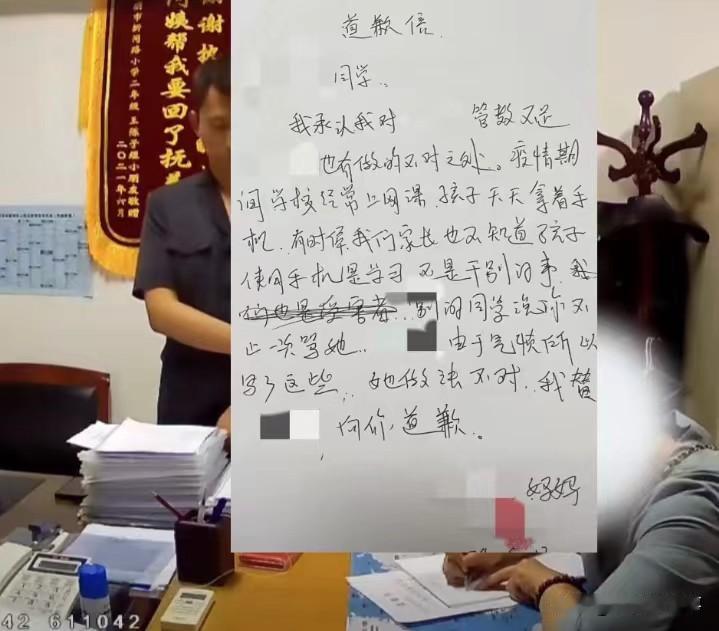 姨帮我要回了抚
二〇二一年六月
道歉信.
同学..
我承认我对 管教不足
也有做的不对之处。疫情期
间学校经常上网课 孩子天天拿着手
机.有时候我们家长也不知道孩子
使用手机是学习还是干别的事.我
们也是受害者..别的同学说你不
止一次骂她.. 由于气愤所以
写了这些..她做法不对..我替
向你,道歉。
妈妈
42 611042